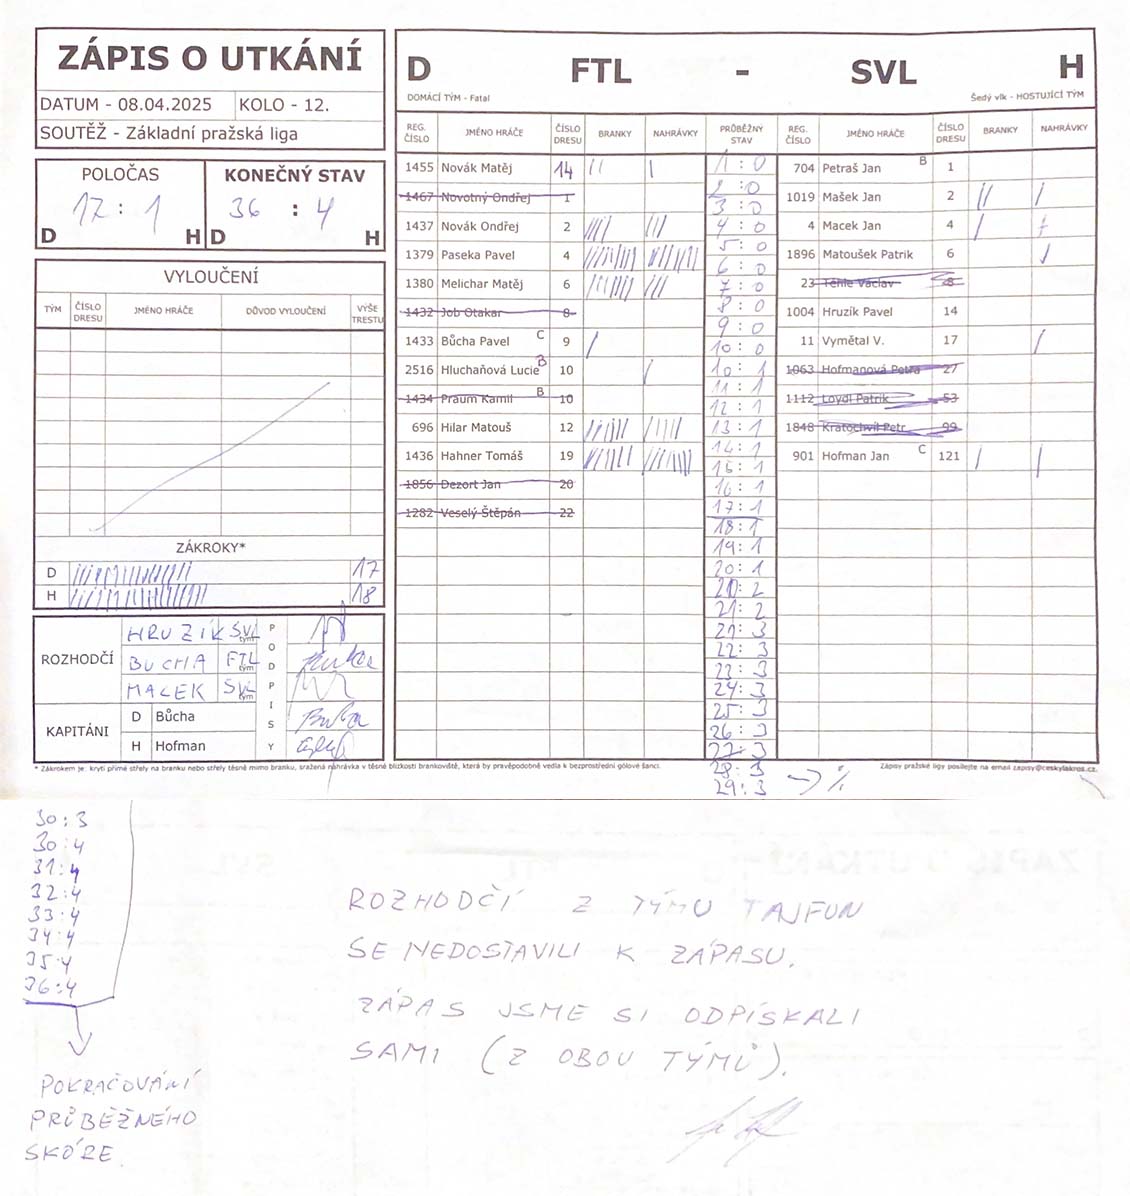 ZÁPIS O UTKÁNÍ
DATUM - 08.04.2025 KOLO - 12.
SOUTĚŽ - Základní pražská liga
POLOČAS
17 : 1
D H
KONEČNÝ STAV
36 : 4
D H
VYLOUČENÍ
TÝM ČÍSLO DRESU JMÉNO HRÁČE DŮVOD VYLOUČENÍ VÝŠE TRESTU
ZÁKROKY*
D 17
H 18
ROZHODČÍ
HRUZÍK SVL tým
BUCHA FTL tým
MACEK SVL tým
KAPITÁNI
D Bůcha
H Hofman
PODPISY
D FTL - SVL H
DOMÁCÍ TÝM - Fatal Šedý vlk - HOSTUJÍCÍ TÝM
REG. ČÍSLO JMÉNO HRÁČE ČÍSLO DRESU BRANKY NAHRÁVKY PRŮBĚŽNÝ STAV REG. ČÍSLO JMÉNO HRÁČE ČÍSLO DRESU BRANKY NAHRÁVKY
1455 Novák Matěj 14
1467 Novotný Ondřej 1
1437 Novák Ondřej 2
1379 Paseka Pavel 4
1380 Melichar Matěj 6
1432 Job Otakar 8
1433 Bůcha Pavel C 9
2516 Hluchaňová Lucie B 10
1434 Praum Kamil B 10
696 Hilar Matouš 12
1436 Hahner Tomáš 19
1856 Dezort Jan 20
1282 Veselý Štěpán 22
1 : 0
2 : 0
3 : 0
4 : 0
5 : 0
6 : 0
7 : 0
8 : 0
9 : 0
10 : 0
10 : 1
11 : 1
12 : 1
13 : 1
14 : 1
15 : 1
16 : 1
17 : 1
18 : 1
19 : 1
20 : 1
20 : 2
21 : 2
21 : 3
22 : 3
23 : 3
24 : 3
25 : 3
26 : 3
27 : 3
28 : 3
29 : 3
704 Petraš Jan B 1
1019 Mašek Jan 2
4 Macek Jan 4
1896 Matoušek Patrik 6
23 Tehle Václav 8
1004 Hruzík Pavel 14
11 Vymětal V. 17
1063 Hofmanová Petra 27
1112 Loydl Patrik 53
1848 Kratochvíl Petr 99
901 Hofman Jan C 121
* Zákrokem je: krytí přímé střely na branku nebo střely těsně mimo branku, sražená nahrávka v těsné blízkosti brankoviště, která by pravěpodobně vedla k bezprostřední gólové šanci.
Zápisy pražské ligy posílejte na email zapisy@ceskylakros.cz.
30 : 3
30 : 4
31 : 4
32 : 4
33 : 4
34 : 4
35 : 4
36 : 4
POKRAČOVÁNÍ
PRŮBĚŽNÉHO
SKÓRE
ROZHODČÍ Z TÝMU TAJFUN
SE NEDOSTAVILI K ZÁPASU.
ZÁPAS JSME SI ODPÍSKALI
SAMI (Z OBOU TÝMŮ).